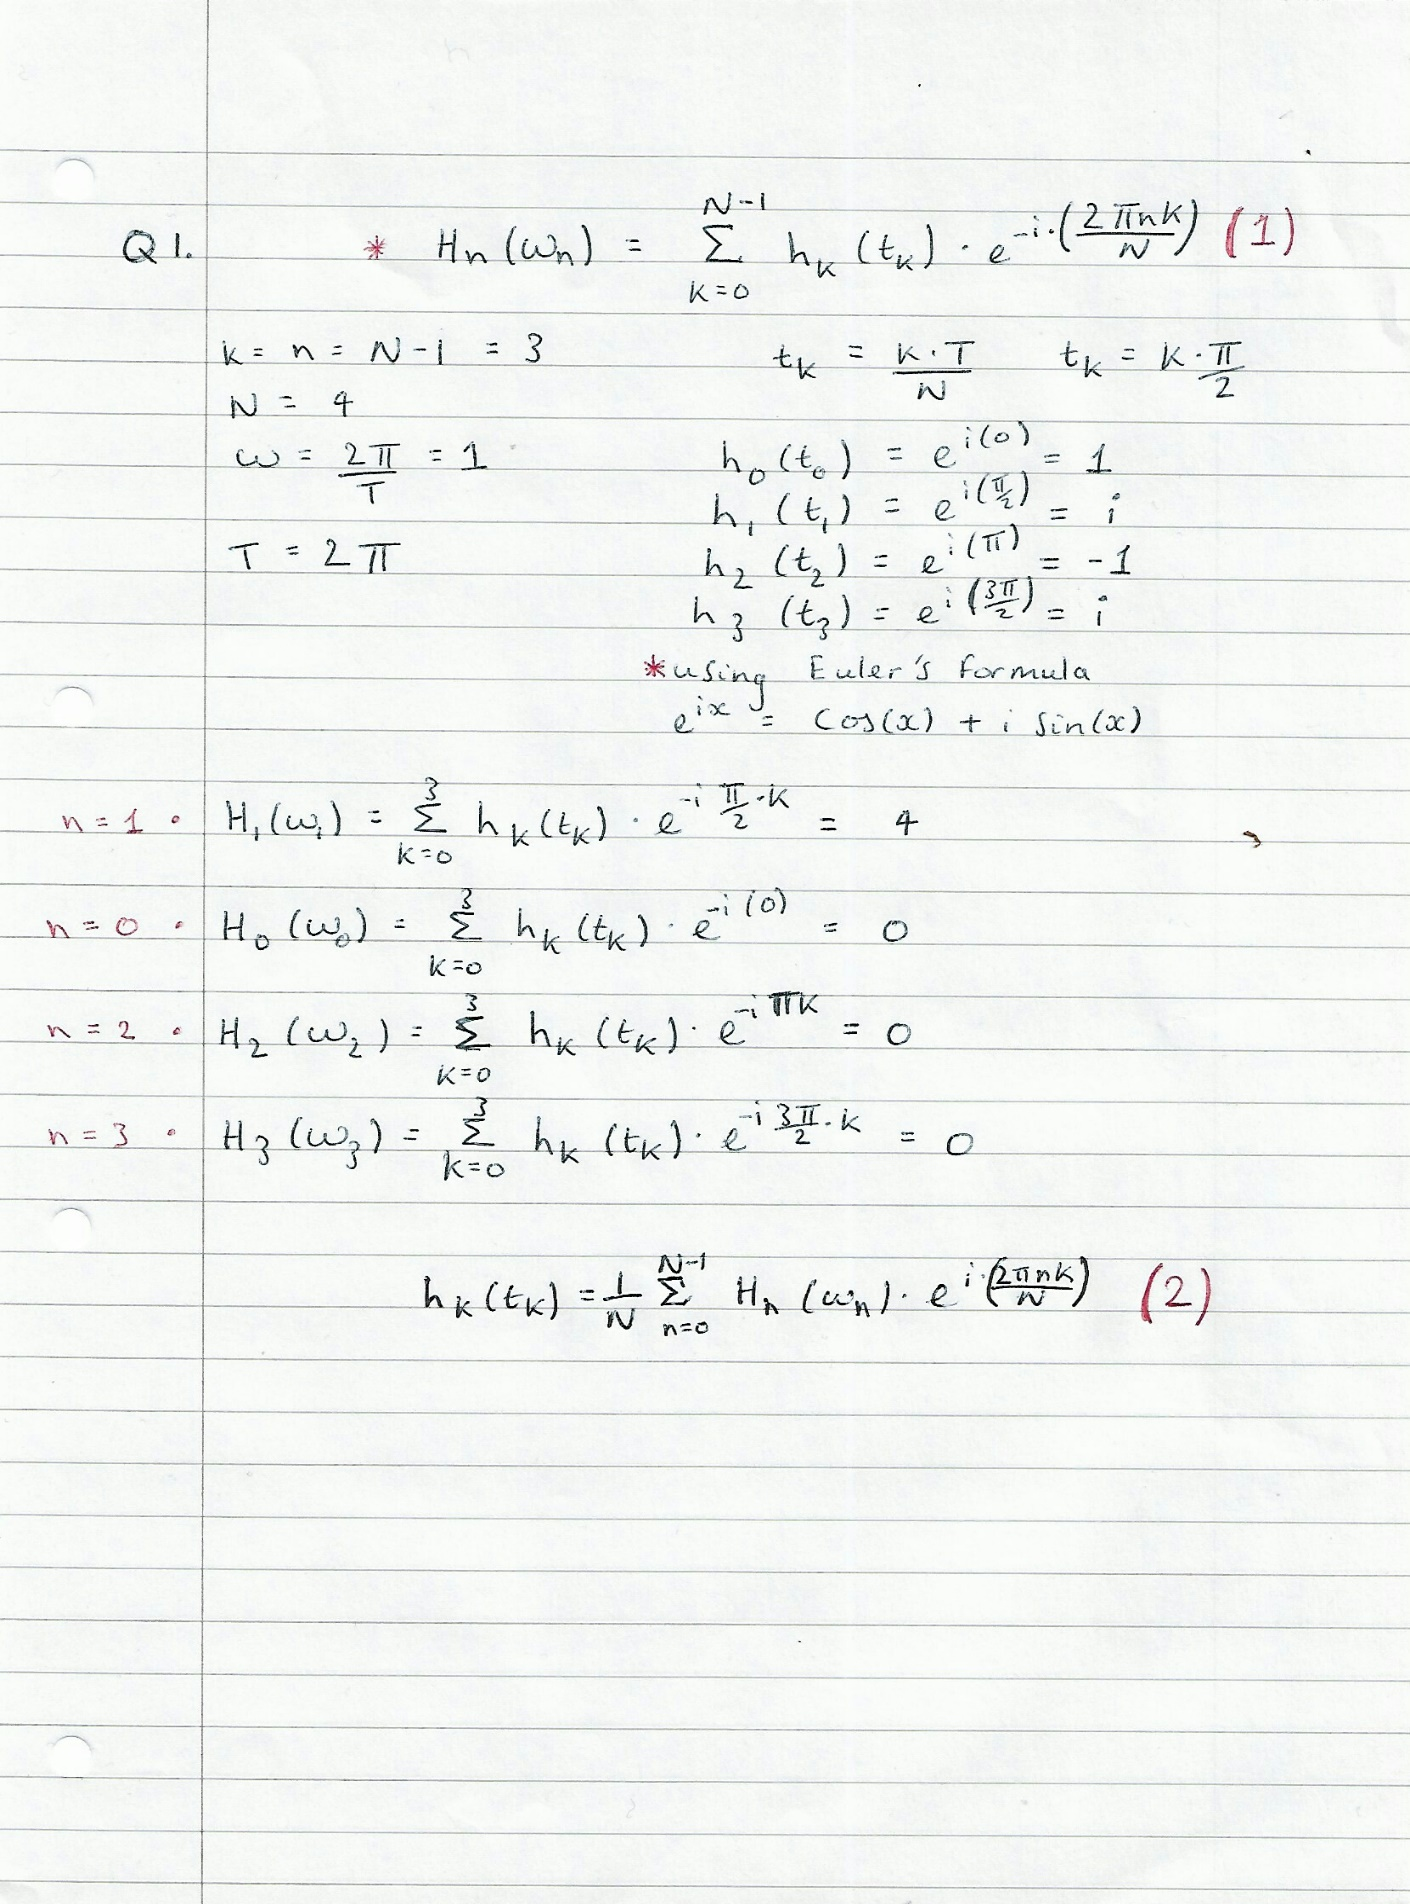 Q1. * Hn(ωn) = Σ_{k=0}^{N-1} hk(tk) · e^{-i·(2πnk/N)} (1)
k = n = N-1 = 3
tk = k·T/N tk = k·π/2
N = 4
ω = 2π/T = 1
T = 2π
h0(t0) = e^{i(0)} = 1
h1(t1) = e^{i(π/2)} = i
h2(t2) = e^{i(π)} = -1
h3(t3) = e^{i(3π/2)} = i
*using Euler's formula
e^{ix} = Cos(x) + i Sin(x)
n=1 • H1(ω1) = Σ_{k=0}^{3} hk(tk) · e^{-i π/2·k} = 4
n=0 • H0(ω0) = Σ_{k=0}^{3} hk(tk) · e^{-i(0)} = 0
n=2 • H2(ω2) = Σ_{k=0}^{3} hk(tk) · e^{-iπk} = 0
n=3 • H3(ω3) = Σ_{k=0}^{3} hk(tk) · e^{-i 3π/2·k} = 0
hk(tk) = 1/N Σ_{n=0}^{N-1} Hn(ωn) · e^{i·(2πnk/N)} (2)